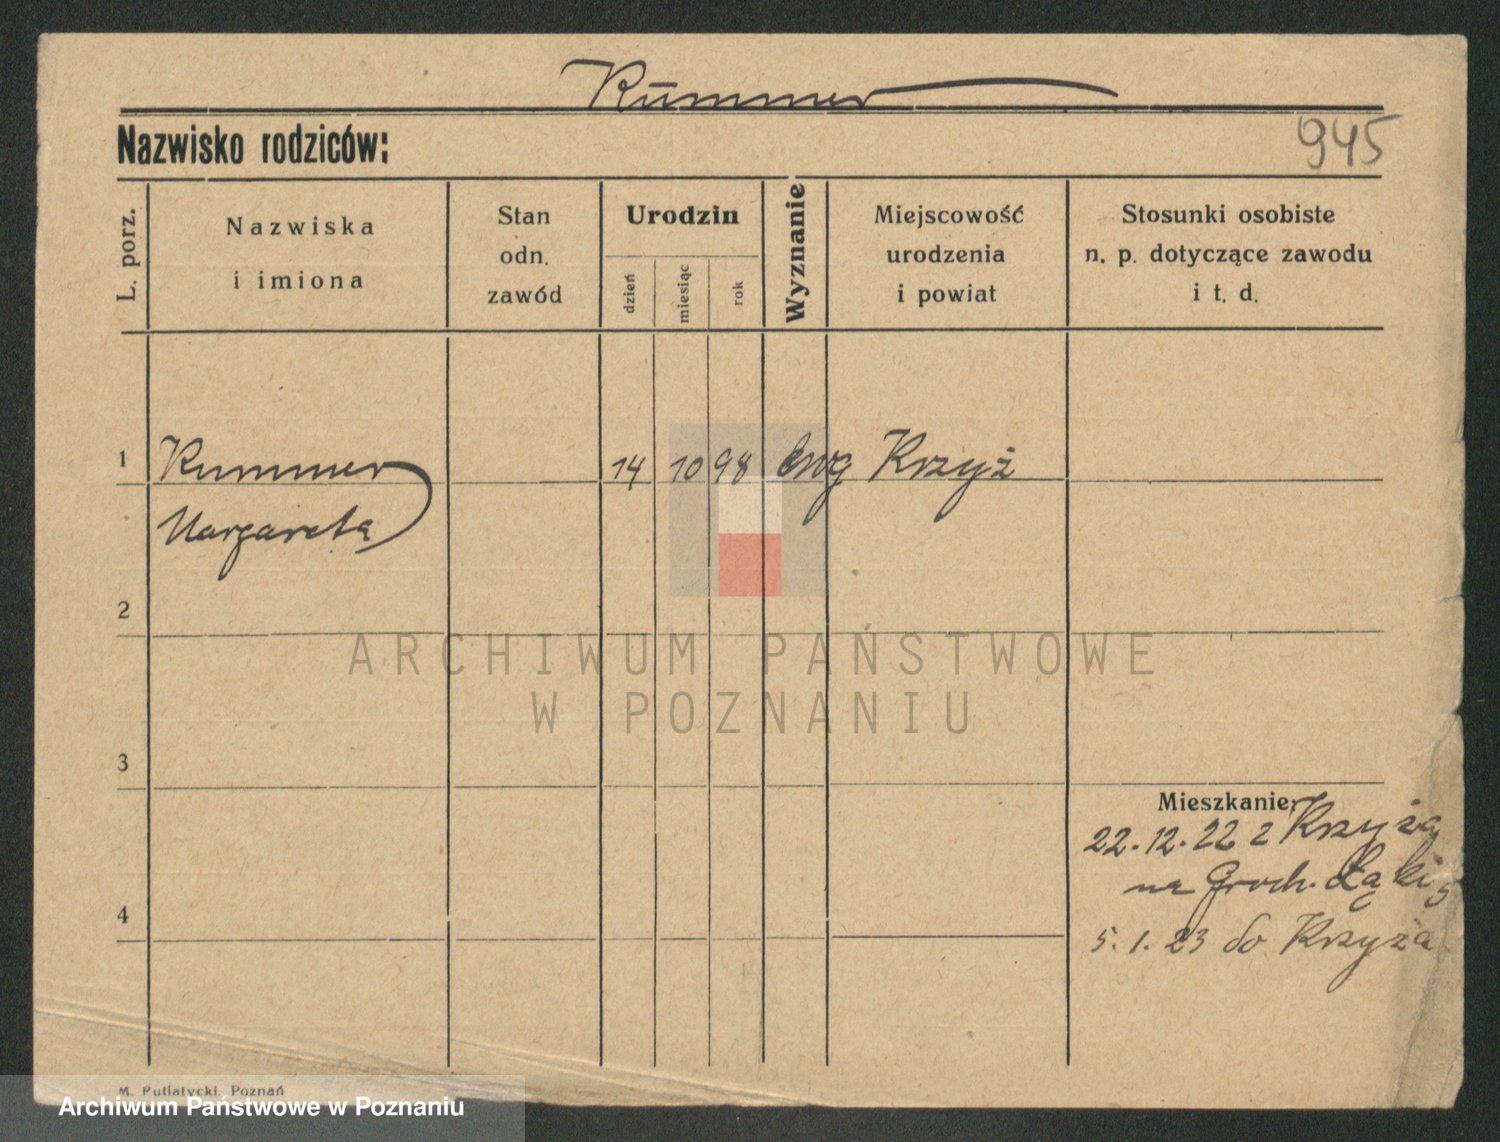 Kummer
Nazwisko rodziców:
945
L. porz.
Nazwiska
i imiona
Stan
odn.
zawód
Urodzin
dzień
miesiąc
rok
Wyznanie
Miejscowość
urodzenia
i powiat
Stosunki osobiste
n. p. dotyczące zawodu
i t. d.
1 Kummer 14 10 98 Ewg Krzyż
Margareta
2
ARCHIWUM PAŃSTWOWE
W POZNANIU
3
Mieszkanie:
22.12.22 z Krzyża
na Groch. Łąki 5
4
5.1.23 do Krzyża
M. Putiatycki, Poznań
Archiwum Państwowe w Poznaniu